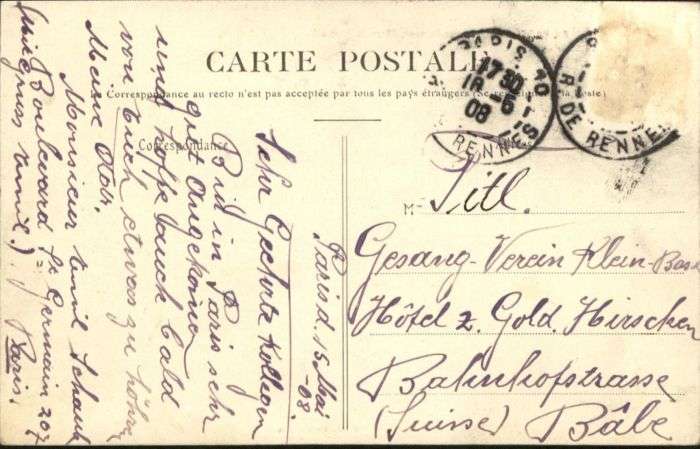 CARTE POSTALE
La Correspondance au recto n'est pas acceptée par tous les pays étrangers (Se renseigner à la Poste)
Correspondance
PARIS
1730
18-5
08
R. DE RENNES
DE RENNES
Paris d. 15 Mai
-08.
Sehr Geehrte Kollegen
Bid in Paris sehr
gut Angekomen
und hoffe auch bald
von Euch etwas zu hören
Meine Adr.
Monsieur Emil Schaub
Boulevard St Germain 207
Paris.
Gruss Emil.)
M
Titl.
Gesang-Verein Klein-Basel
Hôtel z. Gold. Hirschen
Bahnhofstrasse
(Suisse) Bâle